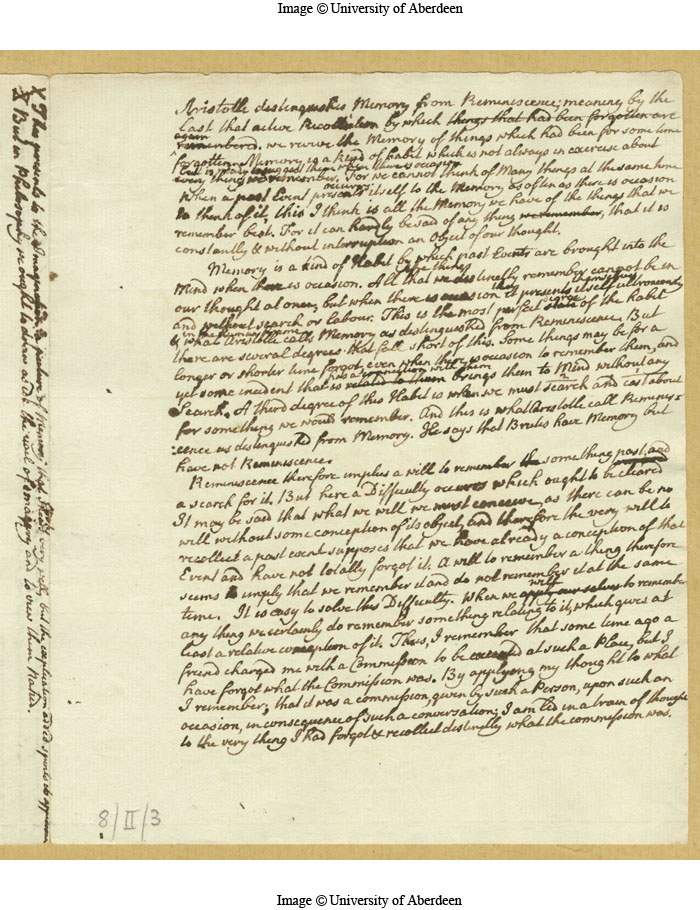 Image © University of Aberdeen
Aristotle distinguishes Memory from Reminiscence; meaning by the
Last that active Recollection by which things that had been forgotten are
again
remembered. we revive the Memory of things which had been for some time
forgotten. Memory is a kind of habit which is not always in exercise about
every thing we remember. For we cannot think of Many things at the same time
occurrs
When a past Event presents itself to the Memory as often as there is occasion
to think of it, this I think is all the Memory we have of the things that we
remember best. For it can hardly be said of any thing we remember, that it is
constantly & without interruption an Object of our thought.
Memory is a kind of Habit by which past Events are brought into the
Mind when there is occasion. All that we distinctly remember cannot be in
our thought at once, but when there is occasion it presents itself
and without search or labour. This is the most perfect state of the Habit
& what Aristotle calls Memory as distinguished from Reminiscence. But
there are several degrees that fall short of this. Some things may be for a
longer or shorter time forgot, even when there is occasion to remember them, and
has a connection with them
yet some incident that is related to them brings them to Mind without any
Search. A third degree of this Habit is when we must search and cast about
for something we would remember. And this is what Aristotle call Reminis=
:cence as distinguished from Memory. He says that Brutes have Memory but
have not Reminiscence.
Reminiscence therefore implies a will to remember something past, and
a search for it. But here a Difficulty occurrs which ought to be cleared
It may be said that what we will we must conceive, as there can be no
will without some conception of its object, and therefore the very will to
recollect a past event supposes that we have already a conception of that
Event and have not totally forgot it. A will to remember a thing therefore
seems to imply that we remember it and do not remember it at the same
time. It is easy to solve this Difficulty. When we apply our selves to remember
will
any thing we certainly do remember something relating to it, which gives at
least a relative conception of it. Thus, I remember that some time ago a
friend charged me with a Commission to be executed at such a Place, but I
have forgot what the Commission was. By applying my thought to what
I remember, that it was a commission, given by such a Person, upon such an
occasion, in consequence of such a conversation; I am led in a train of thought
to the very thing I had forgot & recollect distinctly what the commission was.
X This presents to the Imagination a picture of Memory that very but the explication added
X But in Philosophy we ought to draw aside the veil of imagery and to view them Naked.
8/II/3
Image © University of Aberdeen